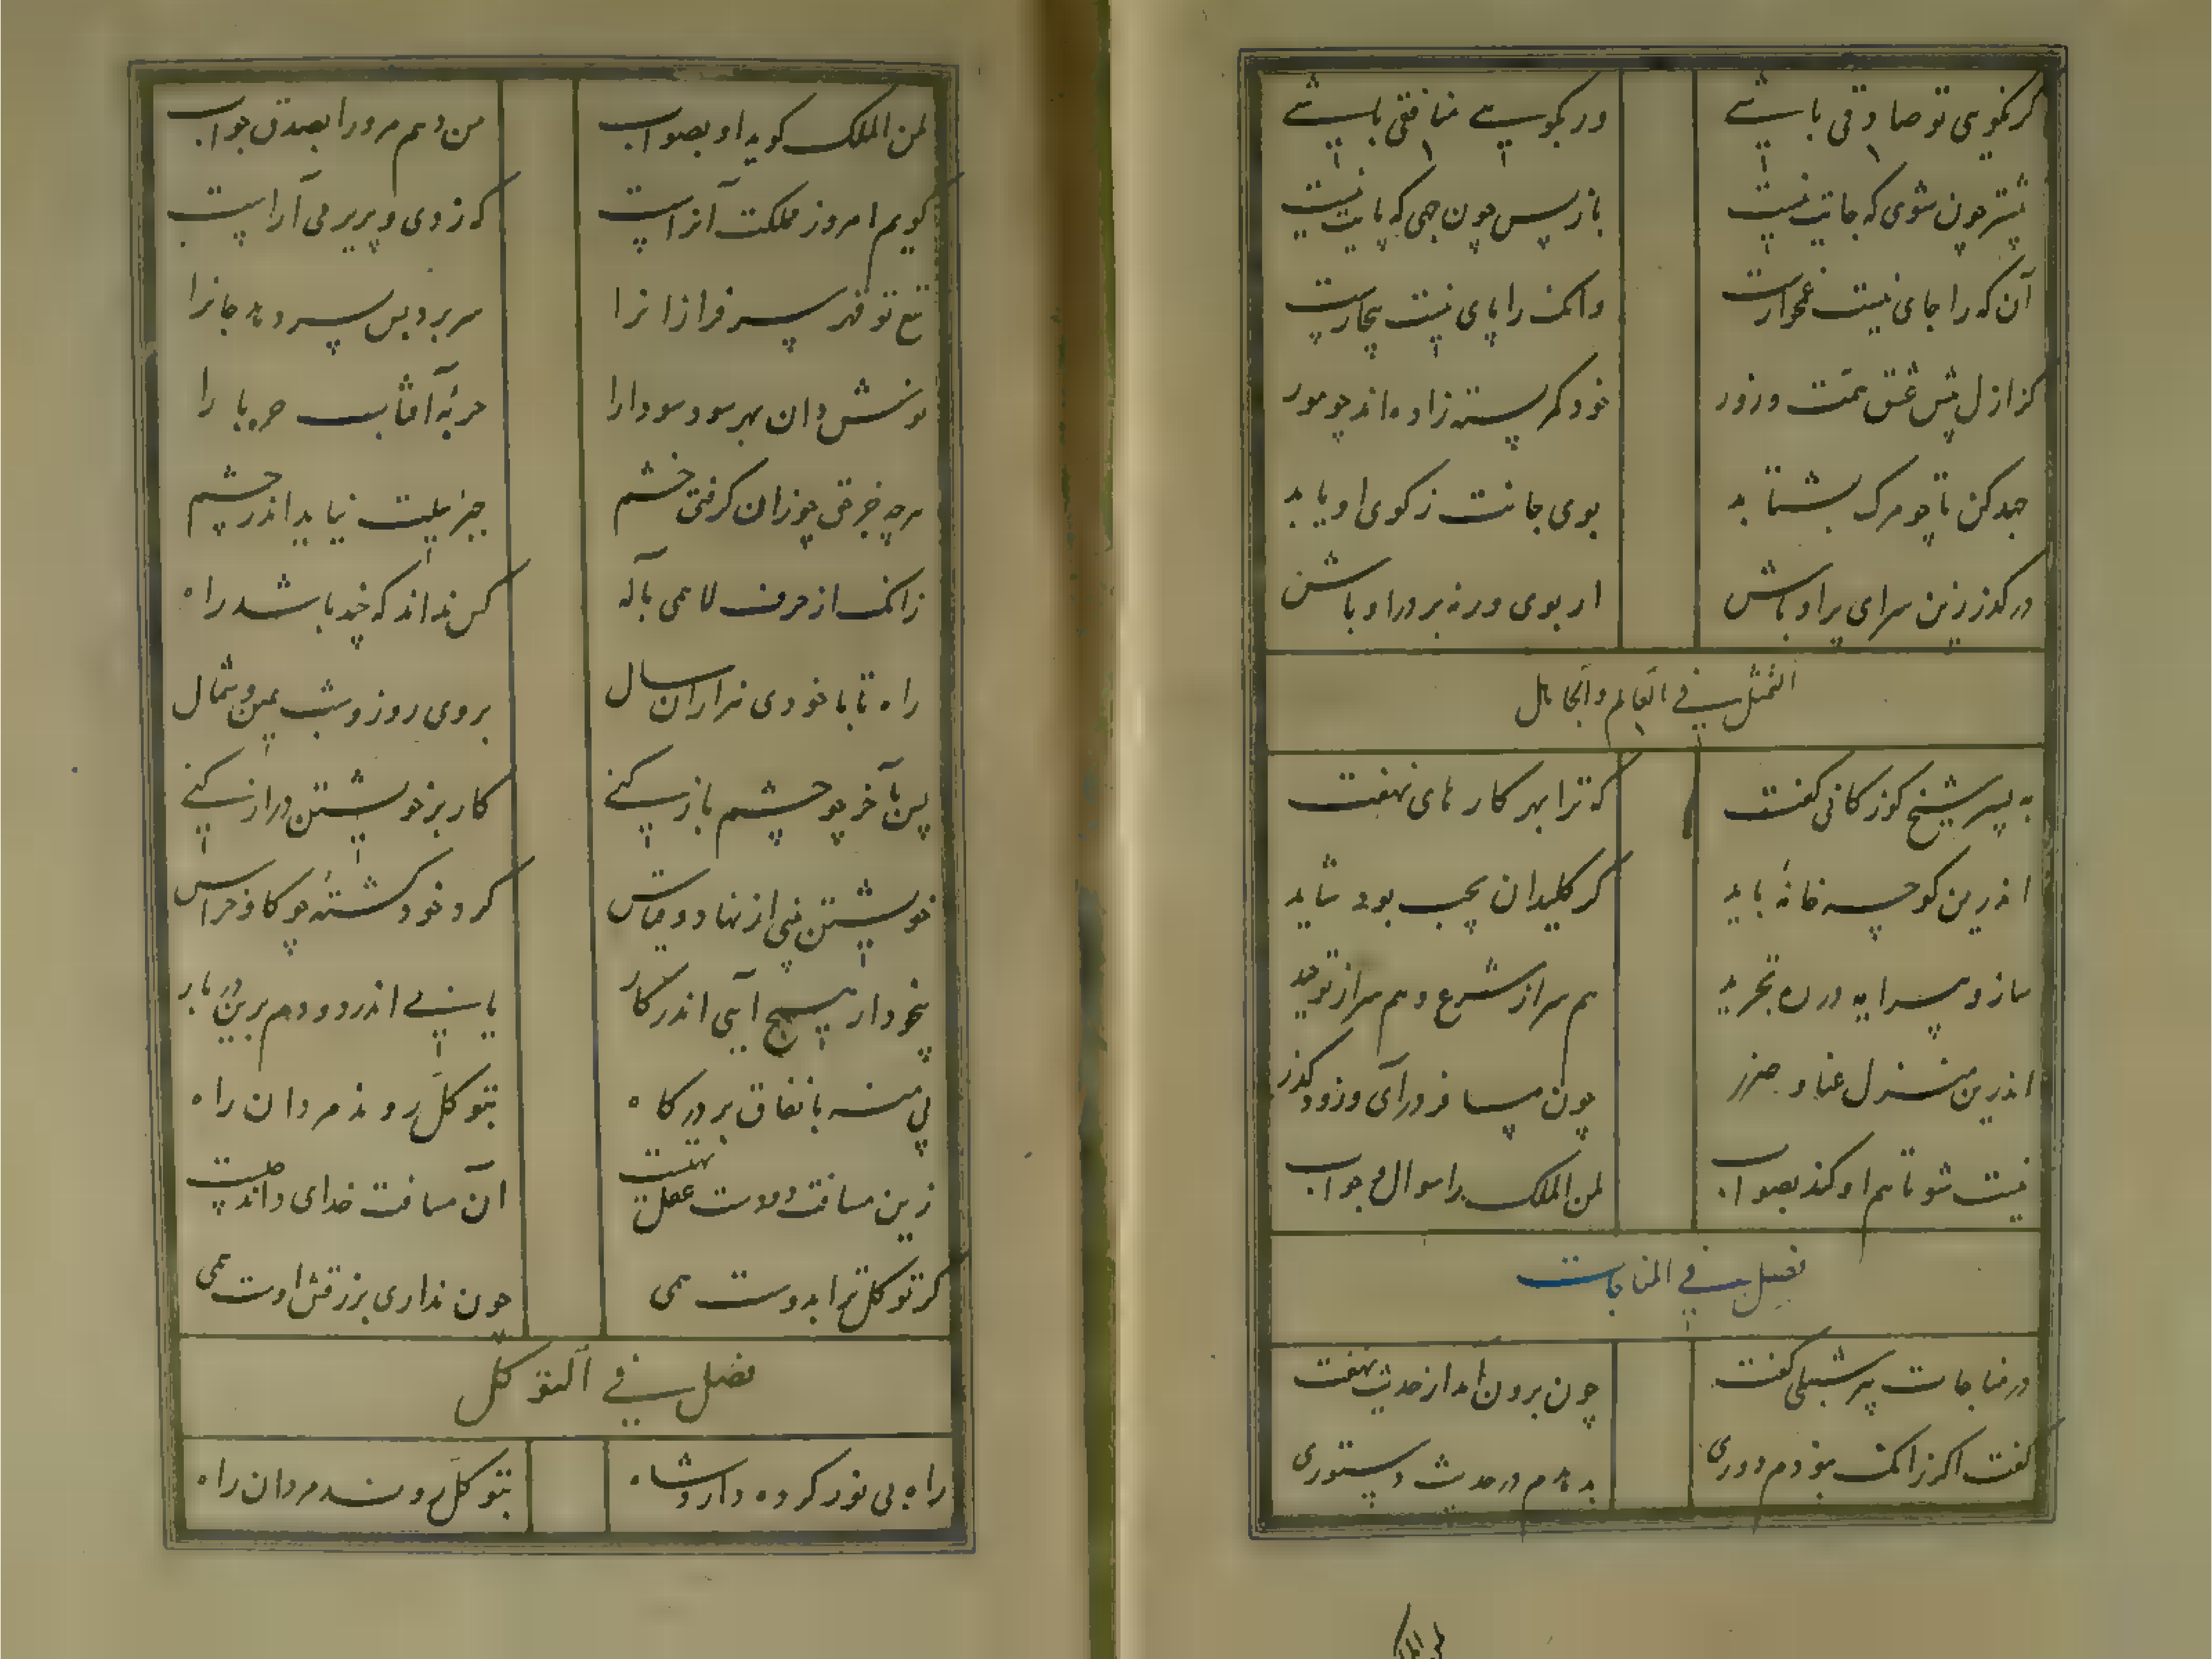 گر نگوی تو صادقی باشے ور بگوسے منافقی باشے
پیشتر چون شوی که جایت نیست باز پس چون جهی که پایت نیست
آن که را جای نیست غمخوارست وانک را پای نیست بیچارست
کز ازل پیش عشق و زور خود کمر بسته زاده اند چو مور
جهد کن تا چو مرک بشتابد بوی جانت ز کوی او یابد
در کذر زین سرای پر اوباش ار بوی ورنه بر در او باش
التمثل فے العالم والجاهل
به پسر شیخ کوزکانی کفت که ترا بهر کار های نهفت
اندرین کوچه خانهٔ باید کر کلیدان بچپ بود شاید
ساز و پیرایه در ره تجرید هم سر از شرع و هم سر از توحید
اندرین منزل عنا و ضرر چون مسافر درآی و زود کذر
نیست شو تا هم او کند بصواب لمن الملک را سوال و جواب
فصل فے المناجات
در مناجات پیر شبلی کفت چون برون امد از حدیث نهفت
کفت اکر زانک نبودم دوری بدهدم در حدیث دستوری
لمن الملک
لمن الملک کوید او بصواب من دهم مرورا بصدق جواب
کویم امروز مملکت آنراست که ز دی و پریر می آراست
تیغ تو قهر سر فرازانرا سر برد پس سر دهد جانرا
نوشش دان بهر سود سودارا حربهٔ آفتاب حربا را
هرچه جز حق چو زان کرفتی خشم جبرئیلت نیاید اندر چشم
زانک از حرف لا همی باله کس نداند که چند باشد راه
راه تا با خودی هزاران سال بروی روز و شب یمین و شمال
پس بآخر چو چشم باز کنے کار بر خویشتن دراز کنے
خویشتن بینی از نهاد و قیاس کرد خود کشتهٔ چو کاو خراس
بخود ار هیچ آیی اندر کار یابے اندر دو دم برین در بار
پی منه با نفاق بر درکاه بتوکل روند مردان راه
زین مسافت دو دست عقل تهیست آن مسافت خدای داند چیست
کر توکل ترا بدوست همی چون نداری برزقش اوست همی
فصل فے التوکل
راه بی نور کرده دارد شاه بتوکل روند مردان راه